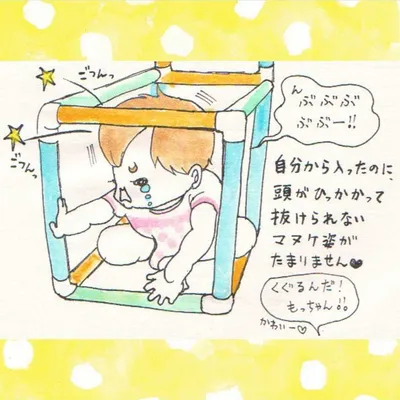 ごつんっ
ごつんっ
ん
ぶぶぶ
ぶぶー!!
自分から入ったのに、
頭がひっかかって
抜けられない
マヌケ姿が
たまりません♥
くぐるんだ!
もっちゃん!!
かわいー♡